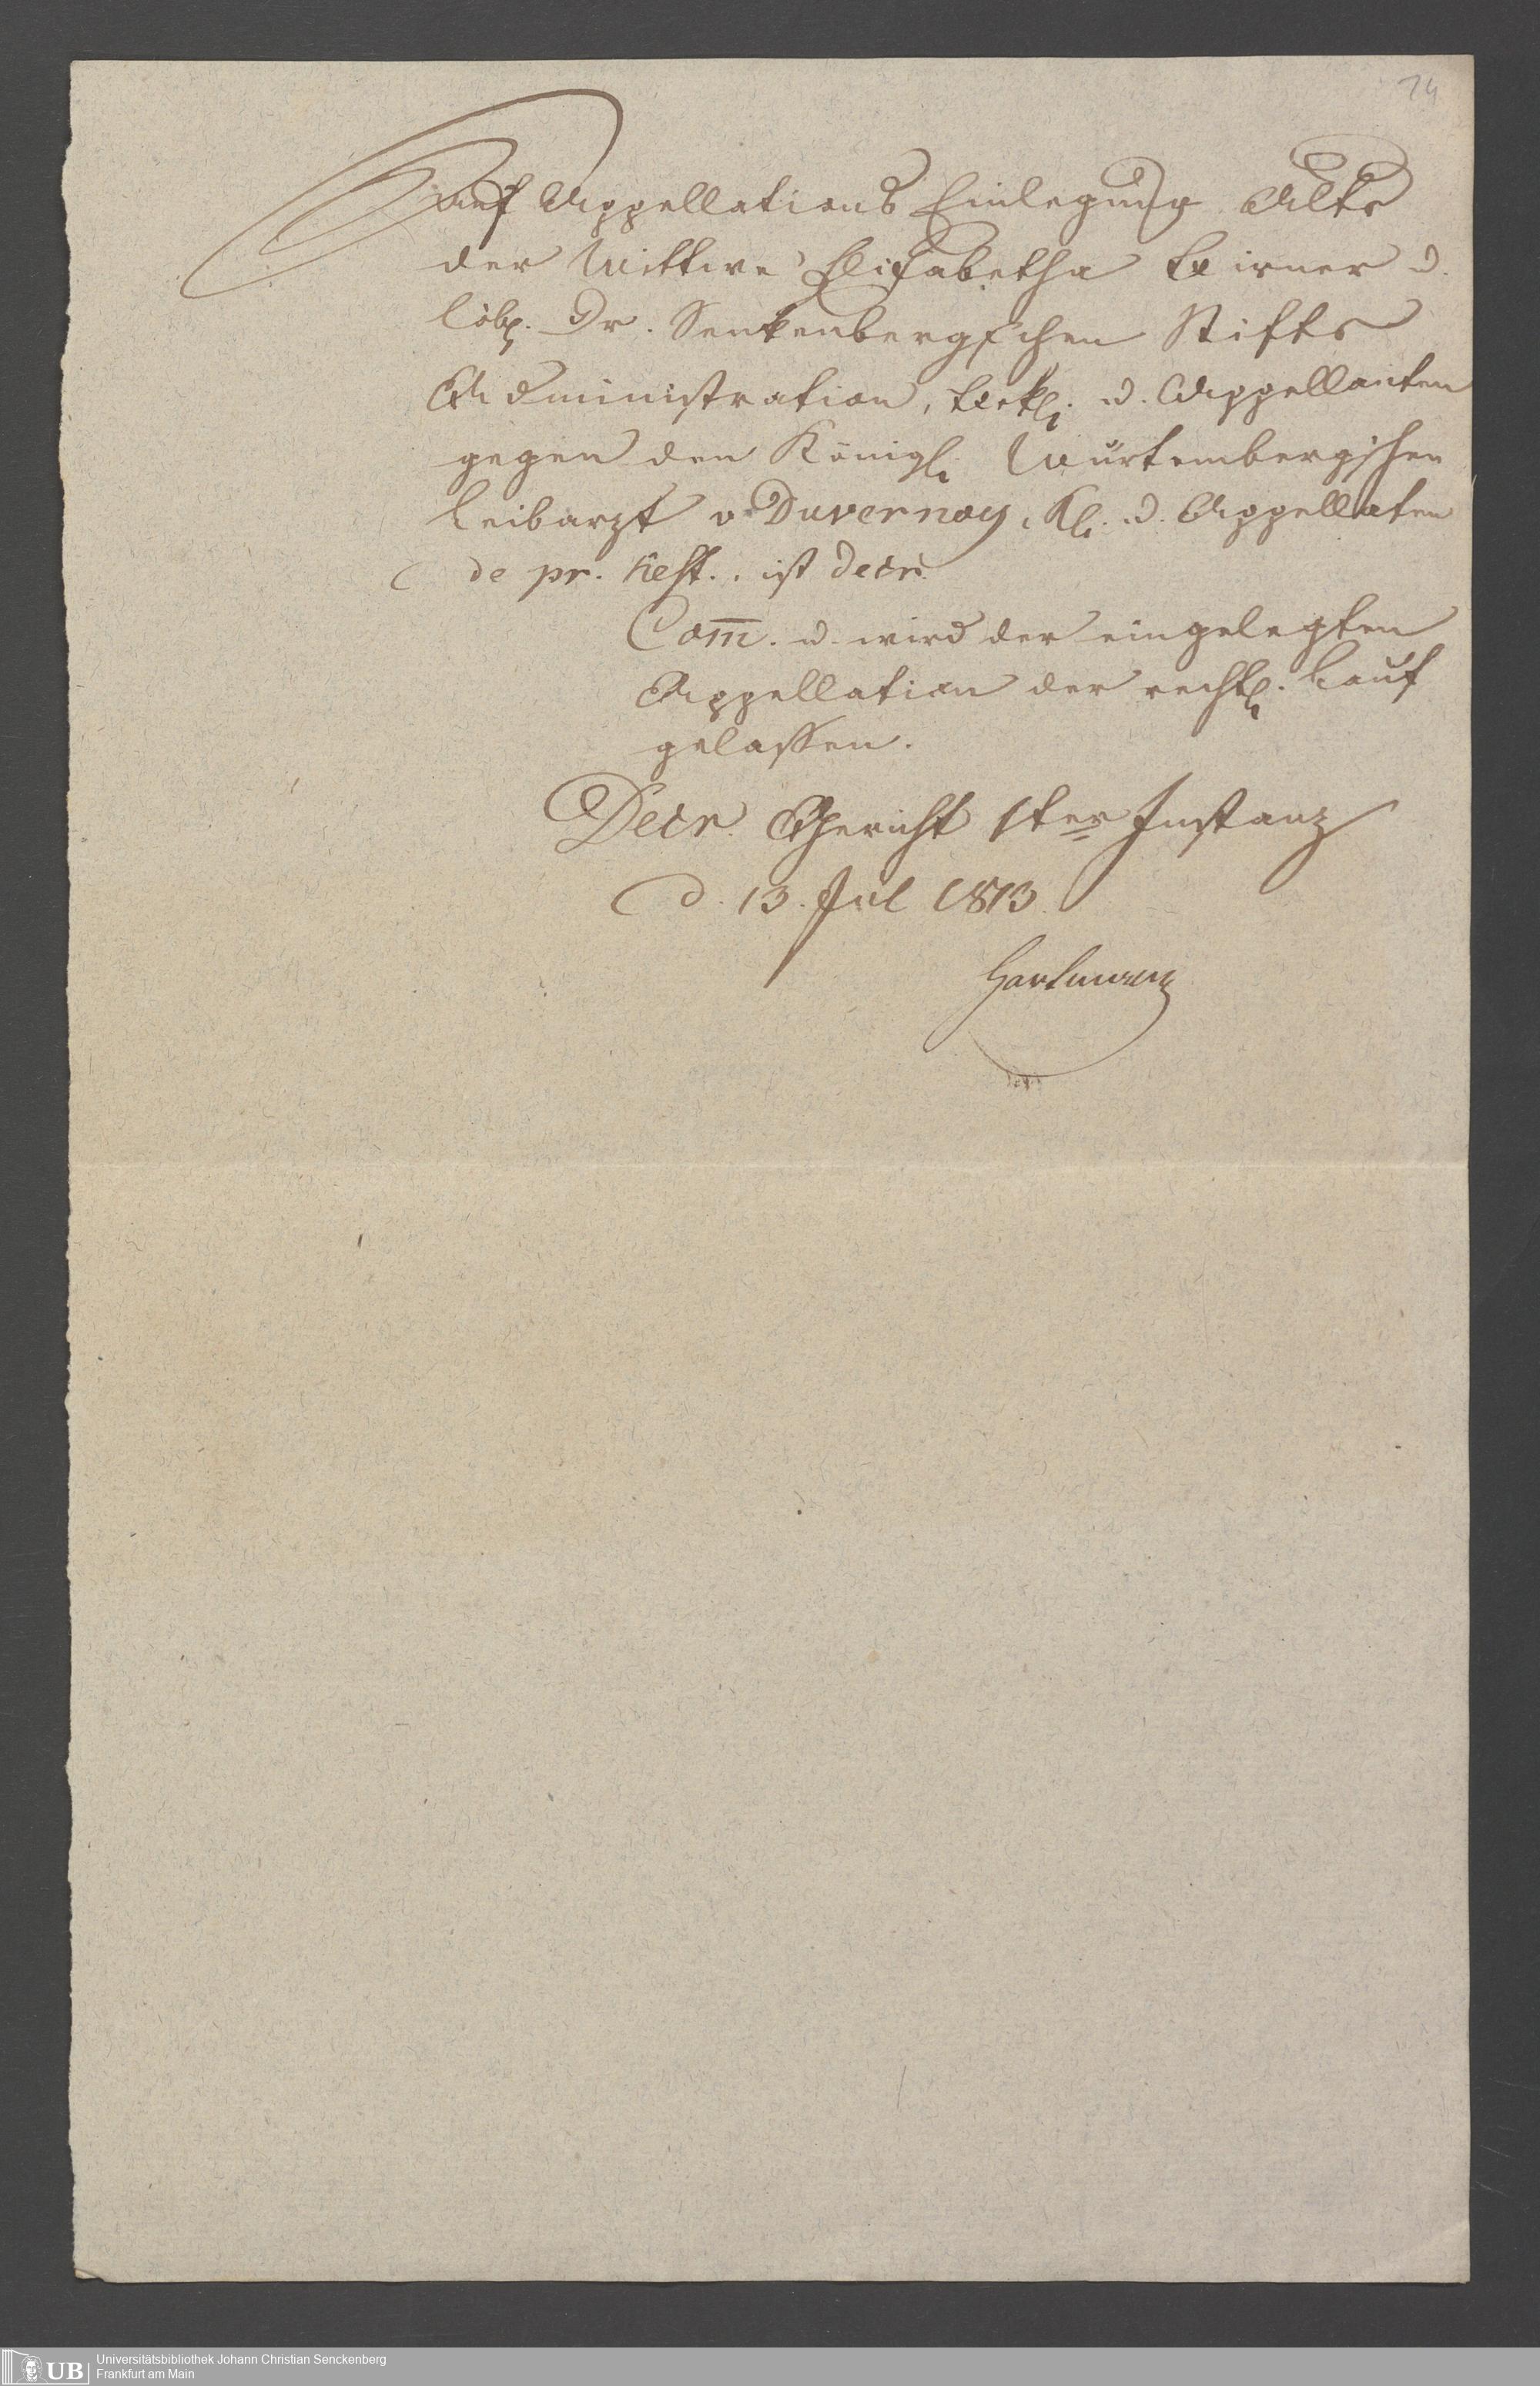 74
Auf Appellations Einlegung Alts
der Wittwe Elisabetha Birner u.
löbl. Dr. Senkenbergschen Stifts
Administration, Bekl. u. Appellanten
gegen den Königl. Würtembergischen
Leibarzt v. Duvernoy, Kl. u. Appellaten
de pr. hest. ist decr.
Com̅. u. wird der eingelegten
Appellation der rechtl. Lauf
gelassen.
Decr. Gericht 1ter Instanz
d. 13. Jul 1813.
Hartmann
UB Universitätsbibliothek Johann Christian Senckenberg
Frankfurt am Main